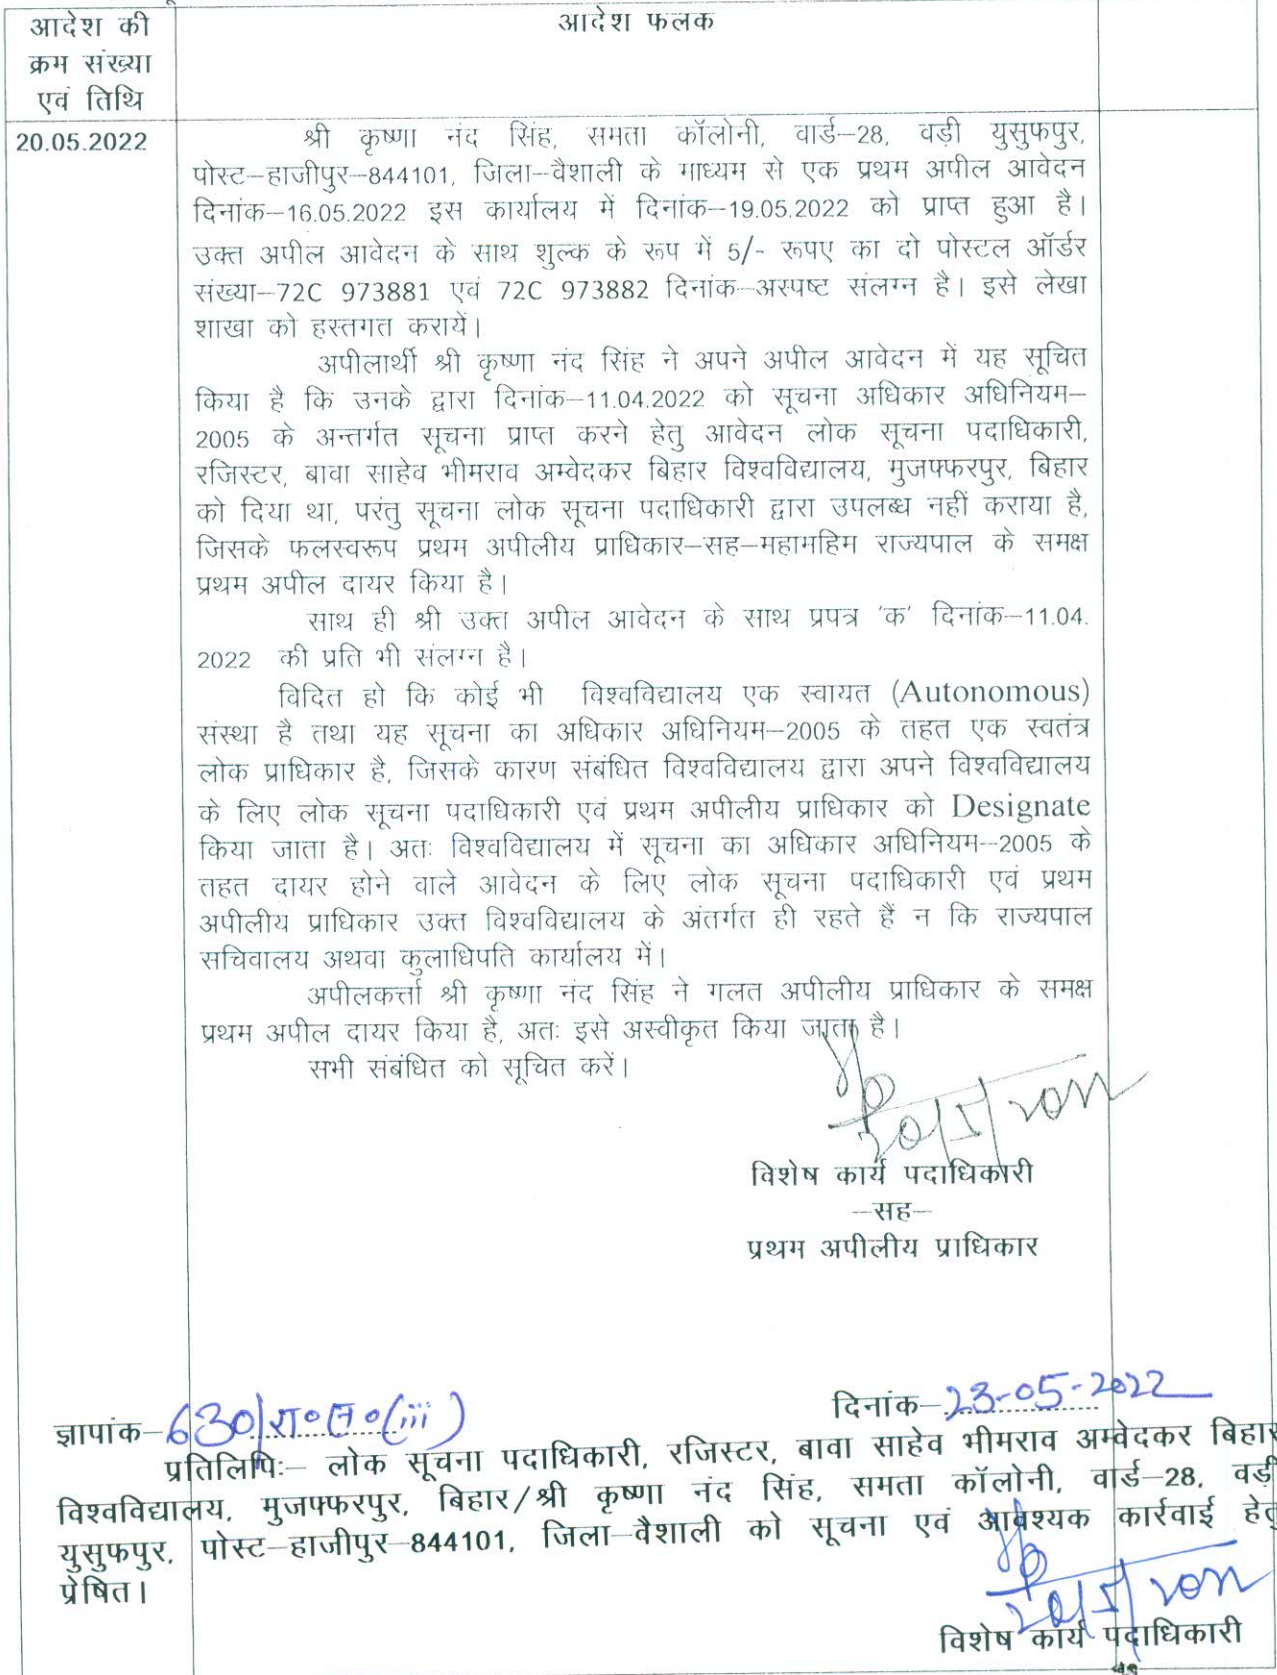 आदेश की
क्रम संख्या
एवं तिथि
आदेश फलक
20.05.2022
श्री कृष्णा नंद सिंह, समता कॉलोनी, वार्ड–28, वड़ी युसुफपुर,
पोस्ट–हाजीपुर–844101, जिला–वैशाली के माध्यम से एक प्रथम अपील आवेदन
दिनांक–16.05.2022 इस कार्यालय में दिनांक–19.05.2022 को प्राप्त हुआ है।
उक्त अपील आवेदन के साथ शुल्क के रूप में 5/- रूपए का दो पोस्टल ऑर्डर
संख्या–72C 973881 एवं 72C 973882 दिनांक–अस्पष्ट संलग्न है। इसे लेखा
शाखा को हस्तगत करायें।
अपीलार्थी श्री कृष्णा नंद सिंह ने अपने अपील आवेदन में यह सूचित
किया है कि उनके द्वारा दिनांक–11.04.2022 को सूचना अधिकार अधिनियम–
2005 के अन्तर्गत सूचना प्राप्त करने हेतु आवेदन लोक सूचना पदाधिकारी,
रजिस्टर, बावा साहेव भीमराव अम्वेदकर बिहार विश्वविद्यालय, मुजफ्फरपुर, बिहार
को दिया था, परंतु सूचना लोक सूचना पदाधिकारी द्वारा उपलब्ध नहीं कराया है,
जिसके फलस्वरूप प्रथम अपीलीय प्राधिकार–सह–महामहिम राज्यपाल के समक्ष
प्रथम अपील दायर किया है।
साथ ही श्री उक्त अपील आवेदन के साथ प्रपत्र 'क' दिनांक–11.04.
2022 की प्रति भी संलग्न है।
विदित हो कि कोई भी विश्वविद्यालय एक स्वायत (Autonomous)
संस्था है तथा यह सूचना का अधिकार अधिनियम–2005 के तहत एक स्वतंत्र
लोक प्राधिकार है, जिसके कारण संबंधित विश्वविद्यालय द्वारा अपने विश्वविद्यालय
के लिए लोक सूचना पदाधिकारी एवं प्रथम अपीलीय प्राधिकार को Designate
किया जाता है। अतः विश्वविद्यालय में सूचना का अधिकार अधिनियम–2005 के
तहत दायर होने वाले आवेदन के लिए लोक सूचना पदाधिकारी एवं प्रथम
अपीलीय प्राधिकार उक्त विश्वविद्यालय के अंतर्गत ही रहते हैं न कि राज्यपाल
सचिवालय अथवा कुलाधिपति कार्यालय में।
अपीलकर्त्ता श्री कृष्णा नंद सिंह ने गलत अपीलीय प्राधिकार के समक्ष
प्रथम अपील दायर किया है, अतः इसे अस्वीकृत किया जाता है।
सभी संबंधित को सूचित करें।
विशेष कार्य पदाधिकारी
–सह–
प्रथम अपीलीय प्राधिकार
ज्ञापांक–630/रा०स०(iii)
दिनांक–23-05-2022
प्रतिलिपिः– लोक सूचना पदाधिकारी, रजिस्टर, बावा साहेव भीमराव अम्वेदकर बिहार
विश्वविद्यालय, मुजफ्फरपुर, बिहार/श्री कृष्णा नंद सिंह, समता कॉलोनी, वार्ड–28, वड़ी
युसुफपुर, पोस्ट–हाजीपुर–844101, जिला–वैशाली को सूचना एवं आवश्यक कार्रवाई हेतु
प्रेषित।
विशेष कार्य पदाधिकारी